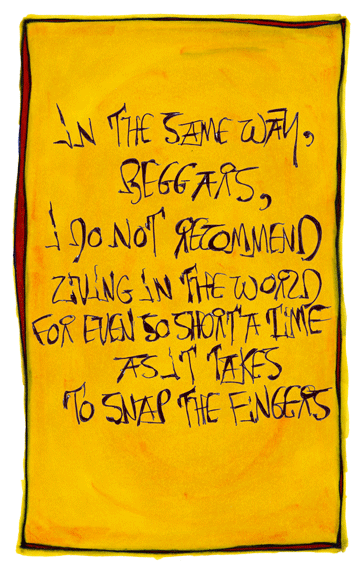 IN THE SAME WAY,
BEGGARS,
I DO NOT RECOMMEND
LIVING IN THE WORLD
FOR EVEN SO SHORT A TIME
AS IT TAKES
TO SNAP THE FINGERS